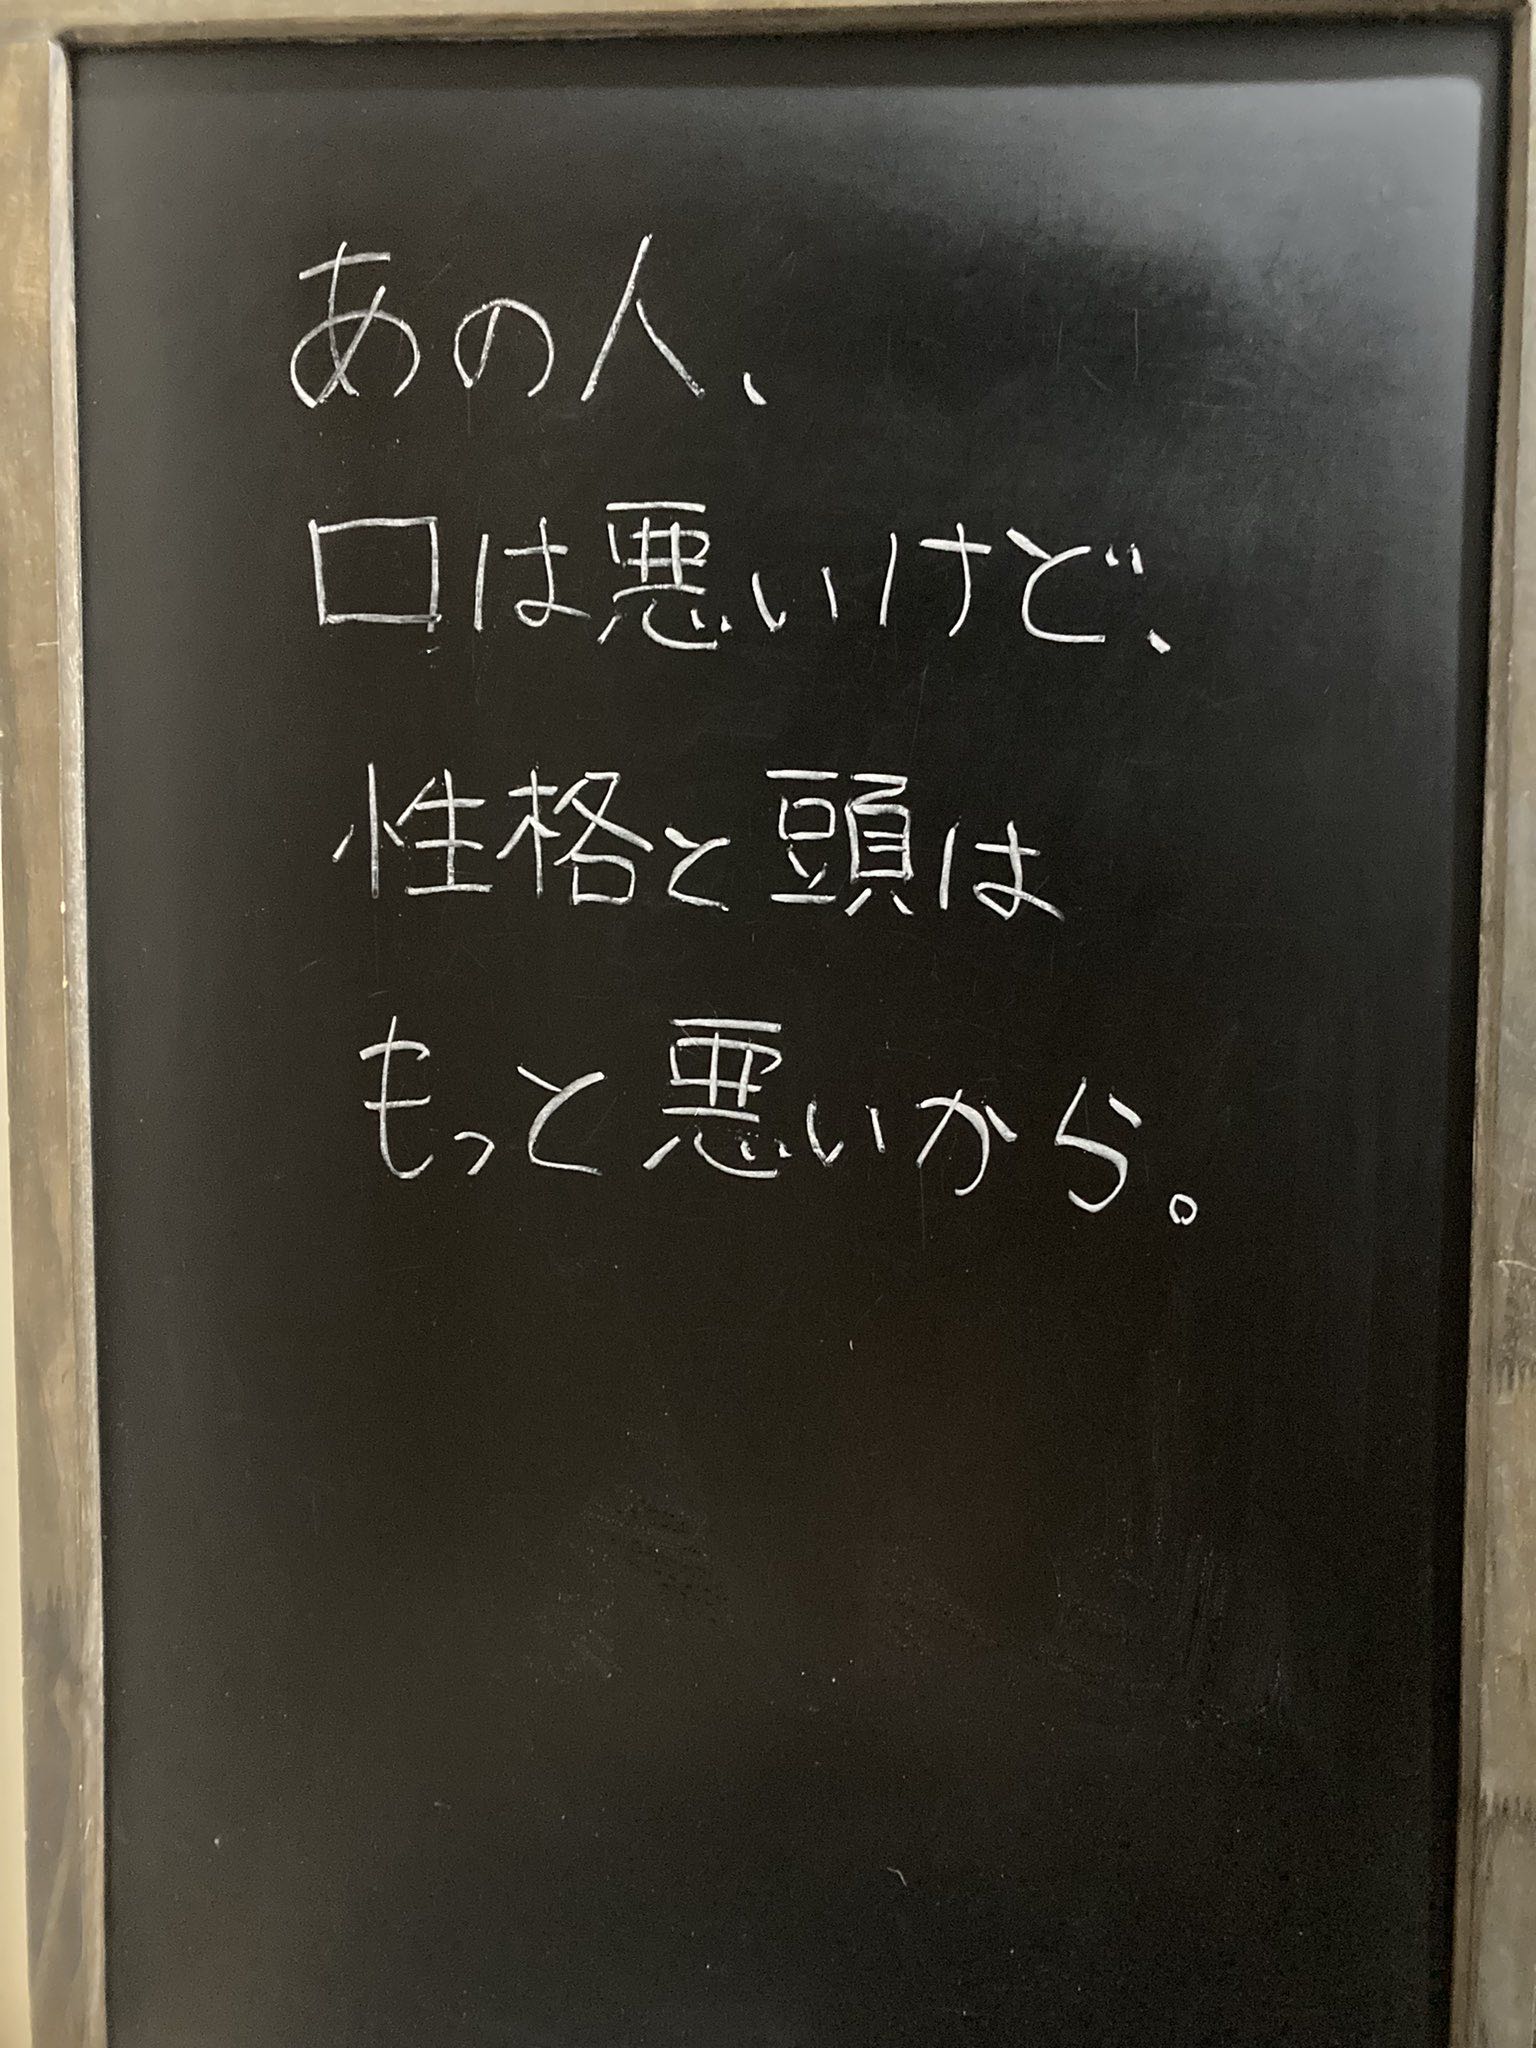 あの人、
口は悪いけど、
性格と頭は
もっと悪いから。